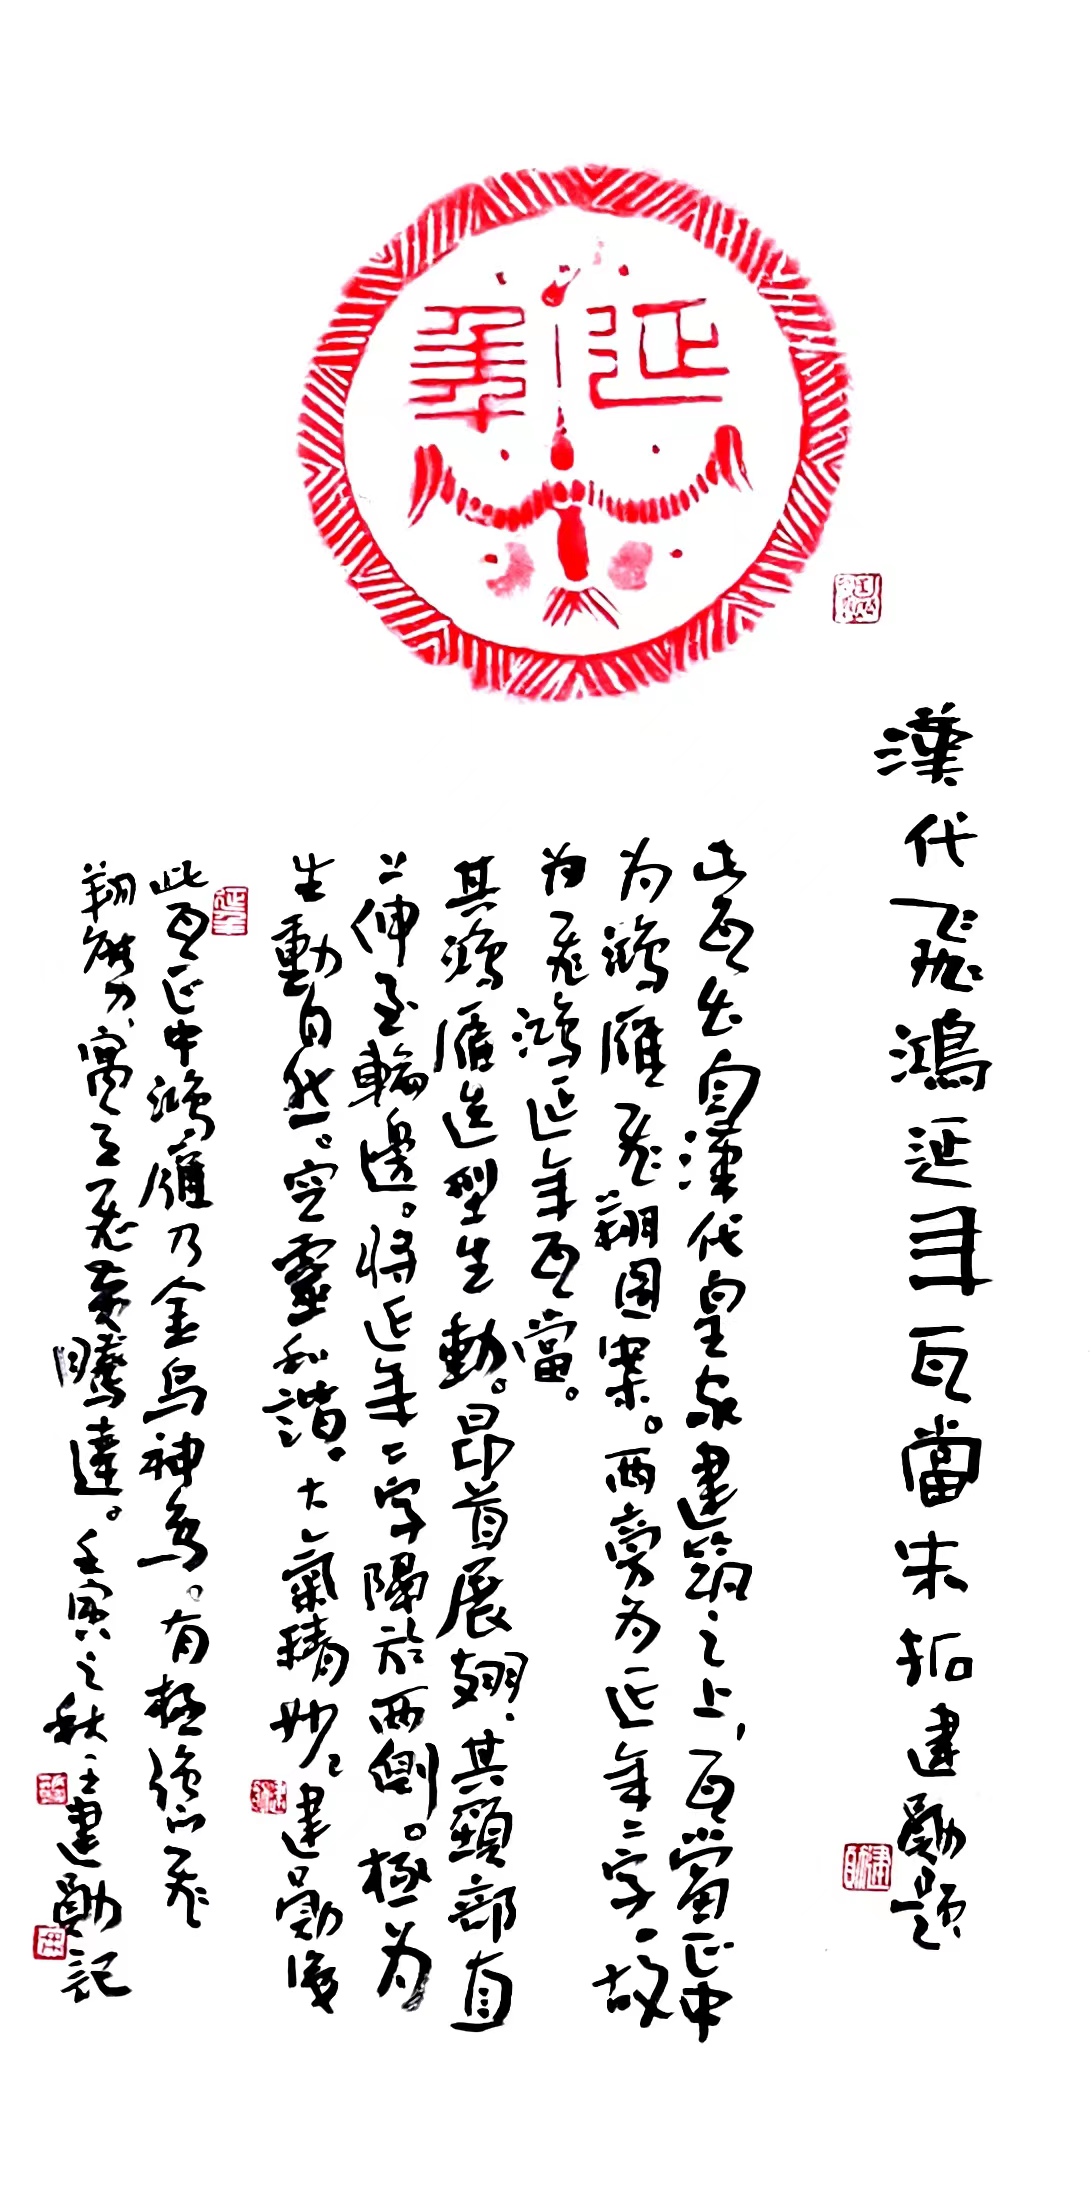 延年
漢代飛鴻延年瓦當朱拓建勛題
此瓦出自漢代皇家建築之上，瓦當正中
为鴻雁飛翔图案。两旁为延年二字，故
为飛鴻延年瓦當。
其鴻雁造型生動。昂首展翅，其頸部直
上伸至輪邊。将延年二字隔於两側。極为
生動自然。空靈和諧。大氣精妙。建勛後
此瓦正中鴻雁乃金烏神鳥。有極强的飛
翔能力，寓意飛黄騰達。壬寅之秋王建勛記